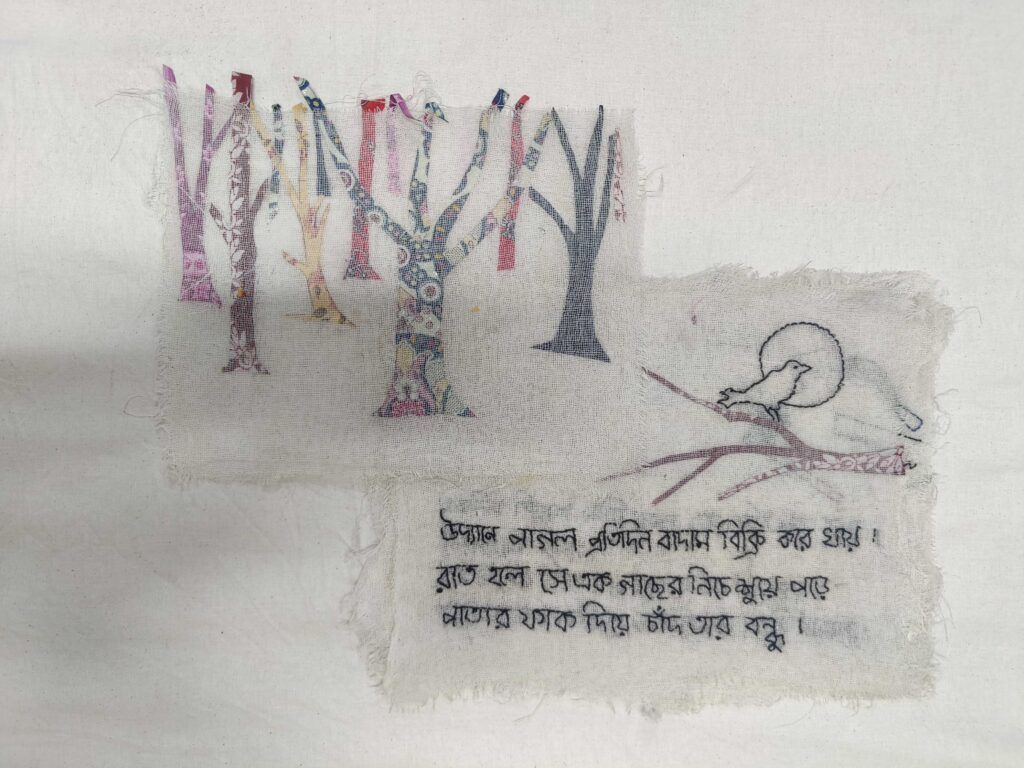 উদ্যানে পাগল প্রতিদিন বাদাম বিক্রি করে খায় ।
রাত হলে সে এক গাছের নিচে শুয়ে পড়ে
পাতার ফাক দিয়ে চাঁদ তার বন্ধু ।